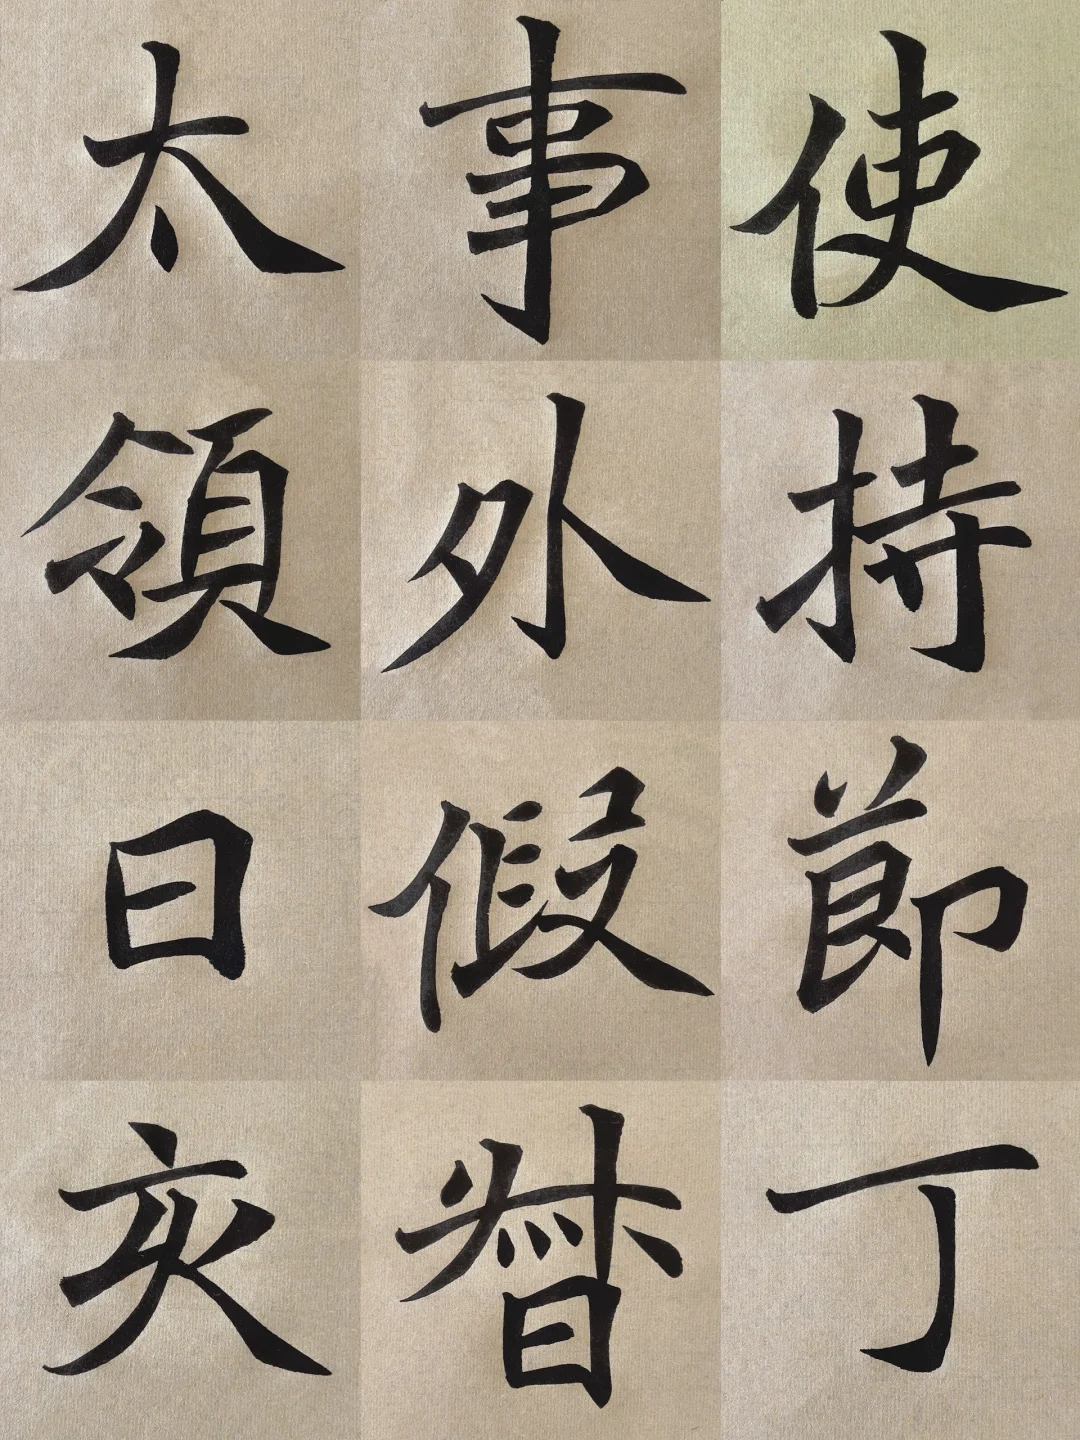 使持節丁
事外假督
太領日亥